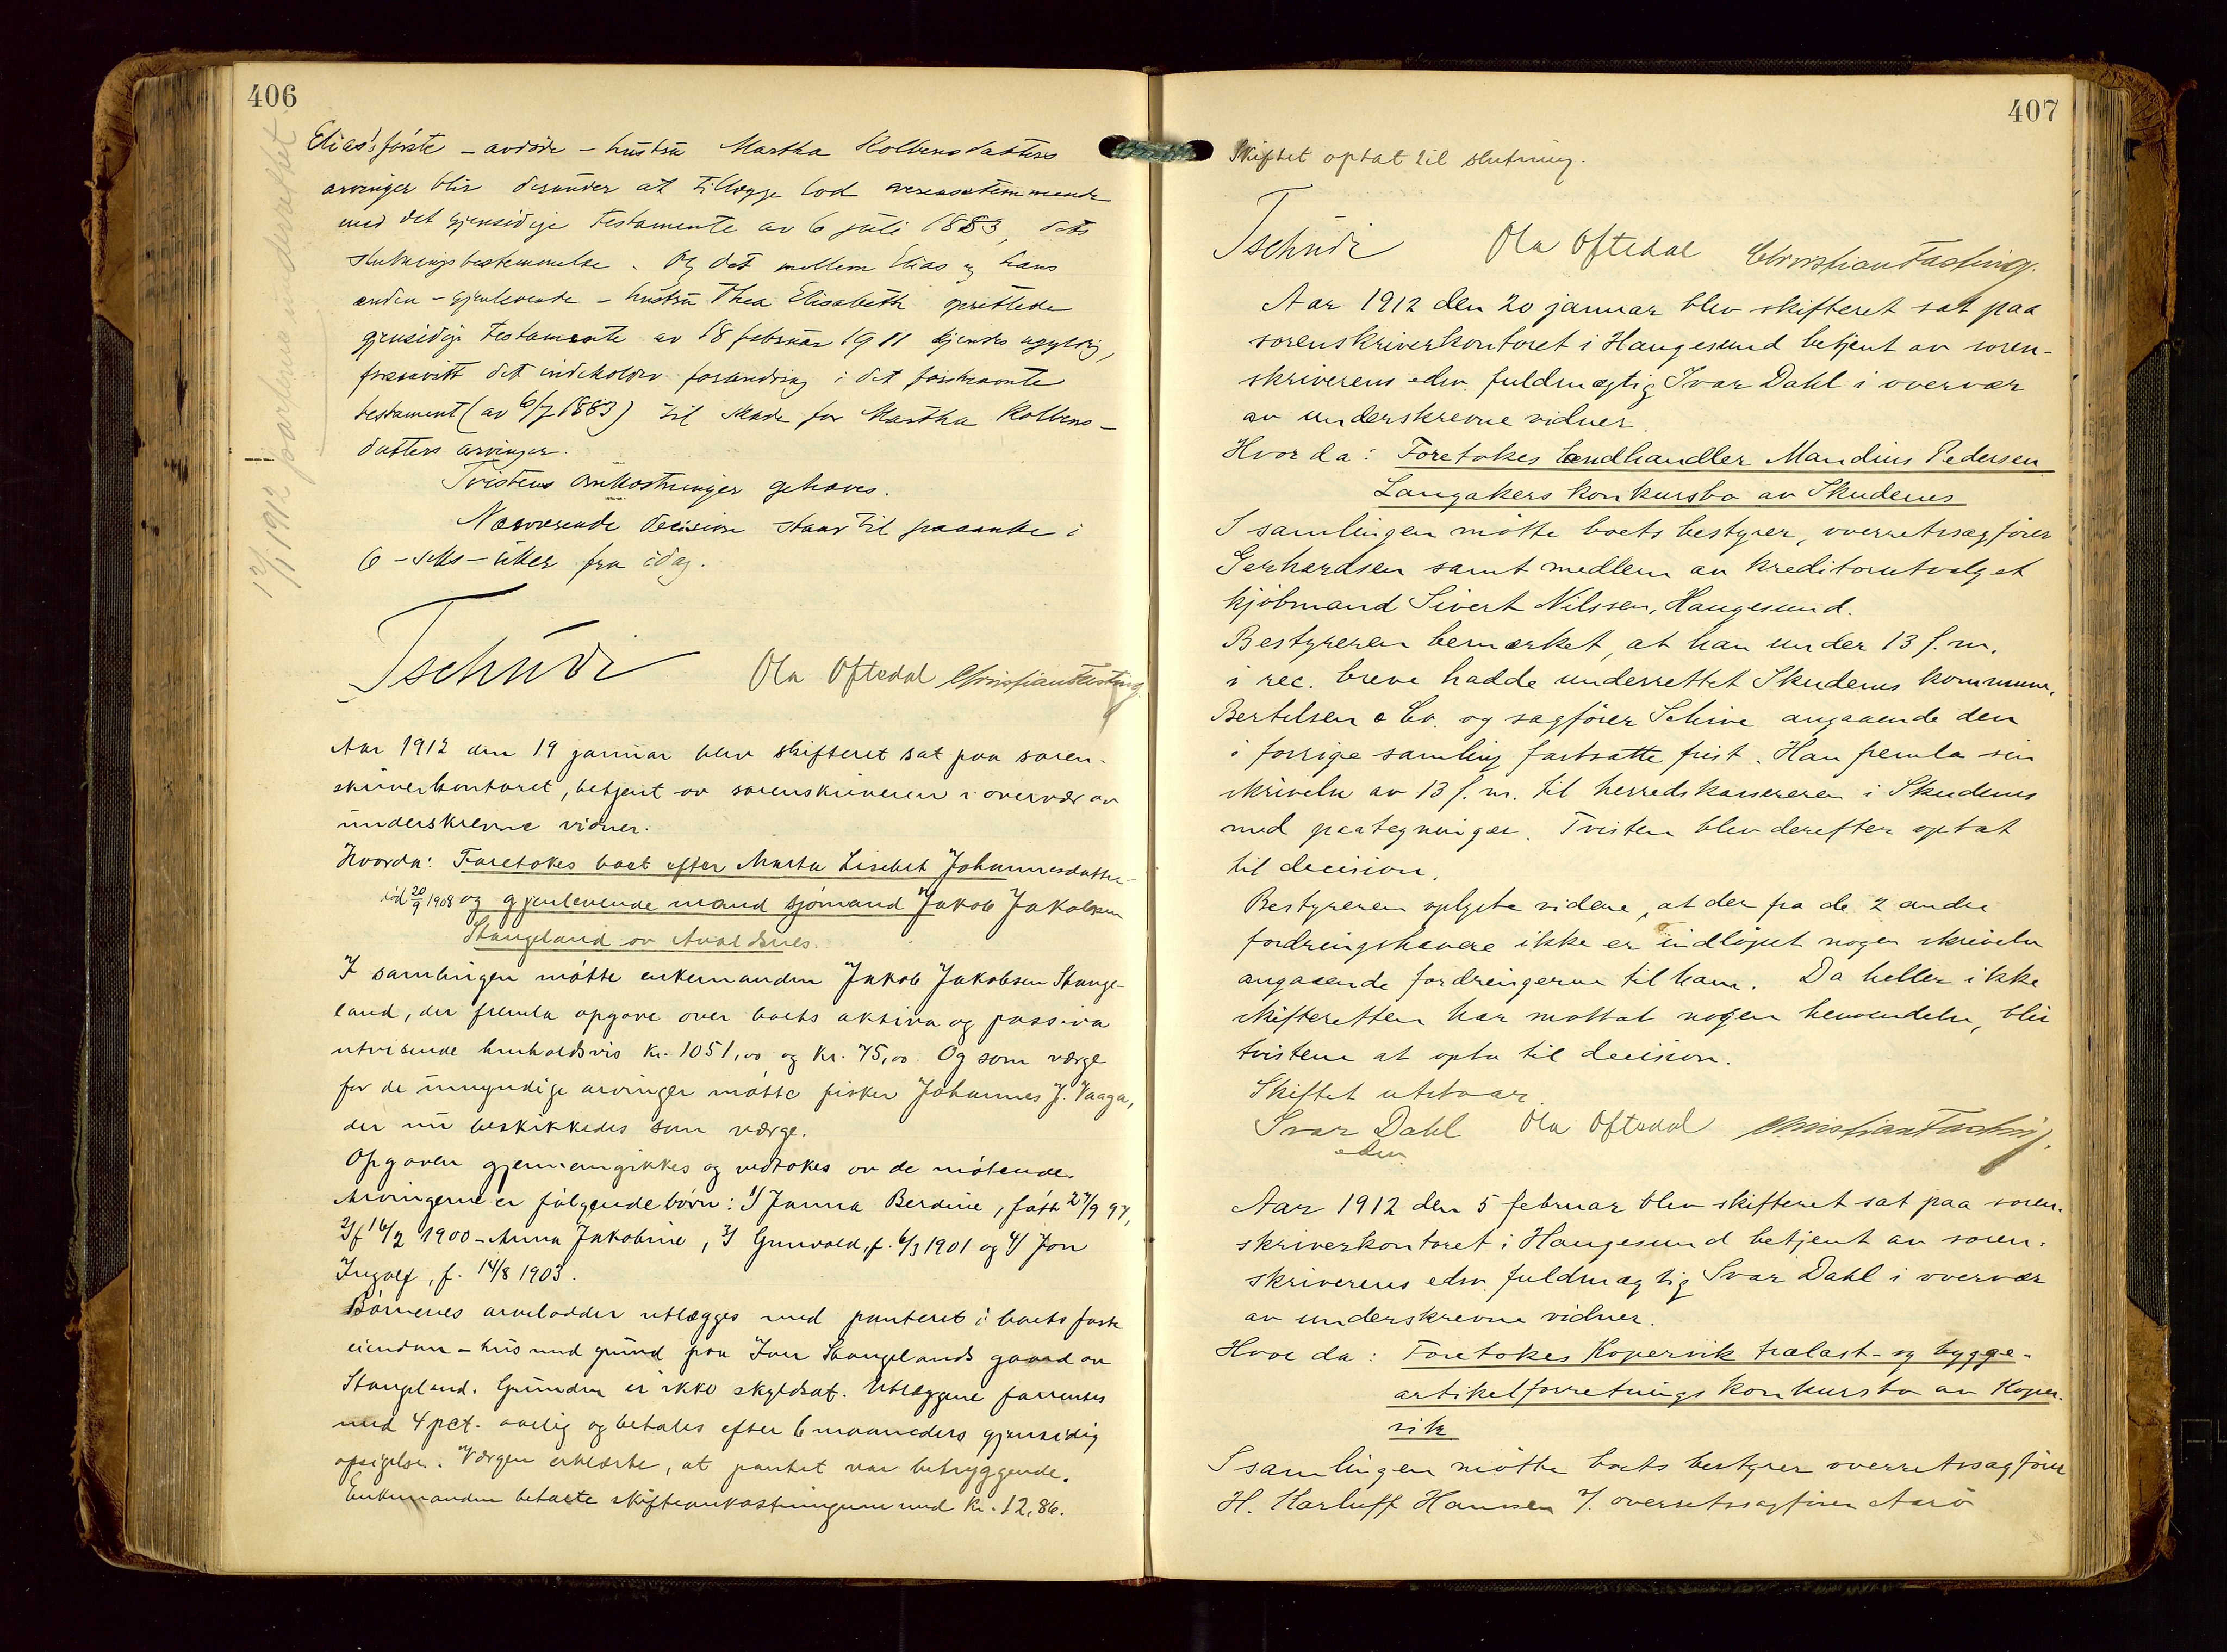 406
Elias's første - avdøde - hustru Martha Kolbensdatters
arvinger blir derunder at tillægge lod overensstemmende
med det gjensidige testamente av 6 juli 1883, dets
slutningsbestemmelse. Og det mellem Elias og hans
anden - gjenlevende - hustru Thea Elisabeth oprettede
gjensidige testamente av 18 februar 1911 kjendes ugyldig,
forsaavitt det indeholder forandring i det førstnævnte
testament (av 6/7 1883) til skade for Martha Kolbens-
datters arvinger.
Tvistens omkostninger hæves.
Nærværende decision staar til paaanke i
6 - seks - uker fra idag.
12/1 1912 partene underrettet.
Tschudi Ola Oftedal Christian Fasting
Aar 1912 den 19 januar blev skifteret sat paa soren-
skriverkontoret, betjent av sorenskriveren i overvær av
underskrevne vidner.
Hvorda: Foretokes boet efter Marta Lisebet Johannesdatter
død 20/9 1908 og gjenlevende mand sjømand Jakob Jakobsen
Stangeland av Avaldsnes.
I samlingen møtte enkemanden Jakob Jakobsen Stange-
land, der fremla opgave over boets aktiva og passiva
utvisende henholdsvis kr. 1051,00 og kr. 75,00. Og som værge
for de umyndige arvinger møtte fisker Johannes J. Vaaga,
der nu beskikkedes som værge.
Opgaven gjennemgikkes og vedtokes av de møtende.
Arvingerne er følgende børn: 1/ Janna Berdine, født 27/9 97,
2/ f 16/2 1900 - Anna Jakobine, 3/ Gunvald, f. 6/3 1901 og 4/ Jon
Ingolf, f. 14/8 1903.
Børnenes arvelodder utlægges med panteret i boets faste
eiendom - hus med grund paa Iver Stangelands gaard av
Stangeland. Grunden er ikke skyldsat. Utlæggene forrentes
med 4 pct. aarlig og betales efter 6 maaneders gjensidig
opsigelse. Værgen erklærte, at pantet var betryggende.
Enkemanden betalte skifteomkostningerne med kr. 12,86.
407
Skiftet optat til slutning.
Tschudi Ola Oftedal Christian Fasting.
Aar 1912 den 20 januar blev skifteret sat paa
sorenskriverkontoret i Haugesund betjent av soren-
skriverens edsv. fuldmægtig Ivar Dahl i overvær
av underskrevne vidner.
Hvor da: Foretokes Landhandler Mandius Pedersen
Langakers konkursbo av Skudenes
I samlingen møtte boets bestyrer, overretssagfører
Gerhardsen samt medlem av kreditorutvalget
kjøbmand Sivert Nilssen, Haugesund.
Bestyreren bemærket, at han under 13 f. m.
i rec. breve hadde underrettet Skudenes kommune,
Bertelsen & Co. og sagfører Schive angaaende den
i forrige samling fastsatte frist. Han fremla sin
skrivelse av 13 f. m. til herredskassereren i Skudenes
med paategninger. Tvisten blev derefter optat
til decision.
Bestyreren oplyste videre, at der fra de 2 andre
fordringshavere ikke er indløpet nogen skrivelse
angaaende fordringerne til ham. Da heller ikke
skifteretten har mottat nogen henvendelse, blir
tvistene at opta til decision.
Skiftet utstaar.
Ivar Dahl Ola Oftedal Christian Fasting.
edsv.
Aar 1912 den 5 februar blev skifteret sat paa soren-
skriverkontoret i Haugesund betjent av soren-
skriverens edsv. fuldmægtig Ivar Dahl i overvær
av underskrevne vidner.
Hvor da: Foretokes Kopervik trælast- og bygge-
artikelforretnings konkursbo av Koper-
vik
I samlingen møtte boets bestyrer overretssagfører
H. Karluff Hansen v/ overretssagfører Aarø